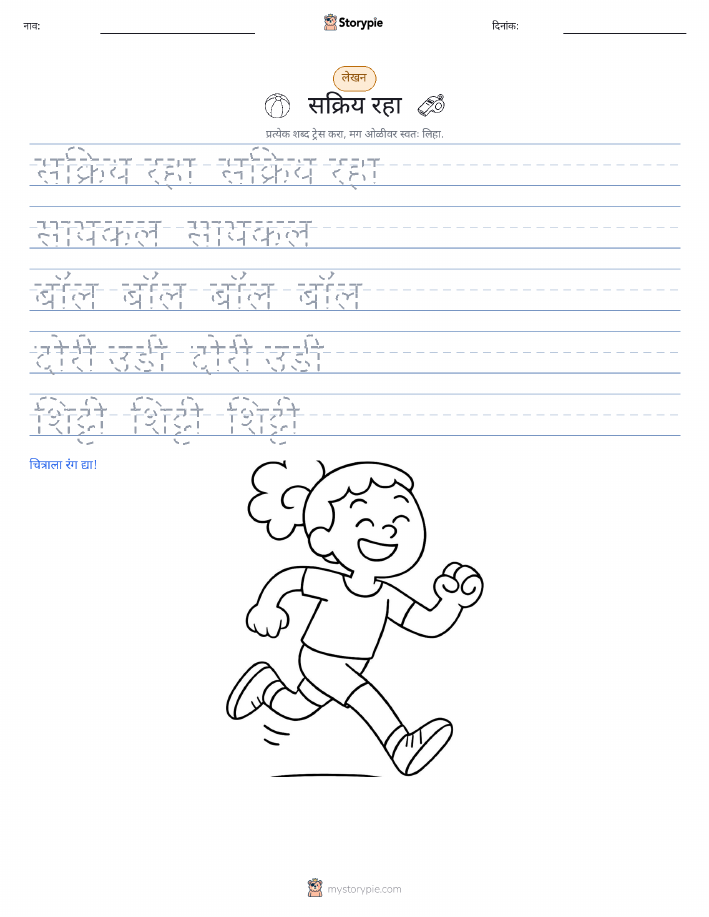 नाव:
Storypie
दिनांक:
लेखन
सक्रिय रहा
प्रत्येक शब्द ट्रेस करा, मग ओळीवर स्वतः लिहा.
सक्रिय रहा सक्रिय रहा
सायकल सायकल
बॉल बॉल बॉल बॉल
दोरी उडी दोरी उडी
शिट्टी शिट्टी शिट्टी
चित्राला रंग द्या!
mystorypie.com